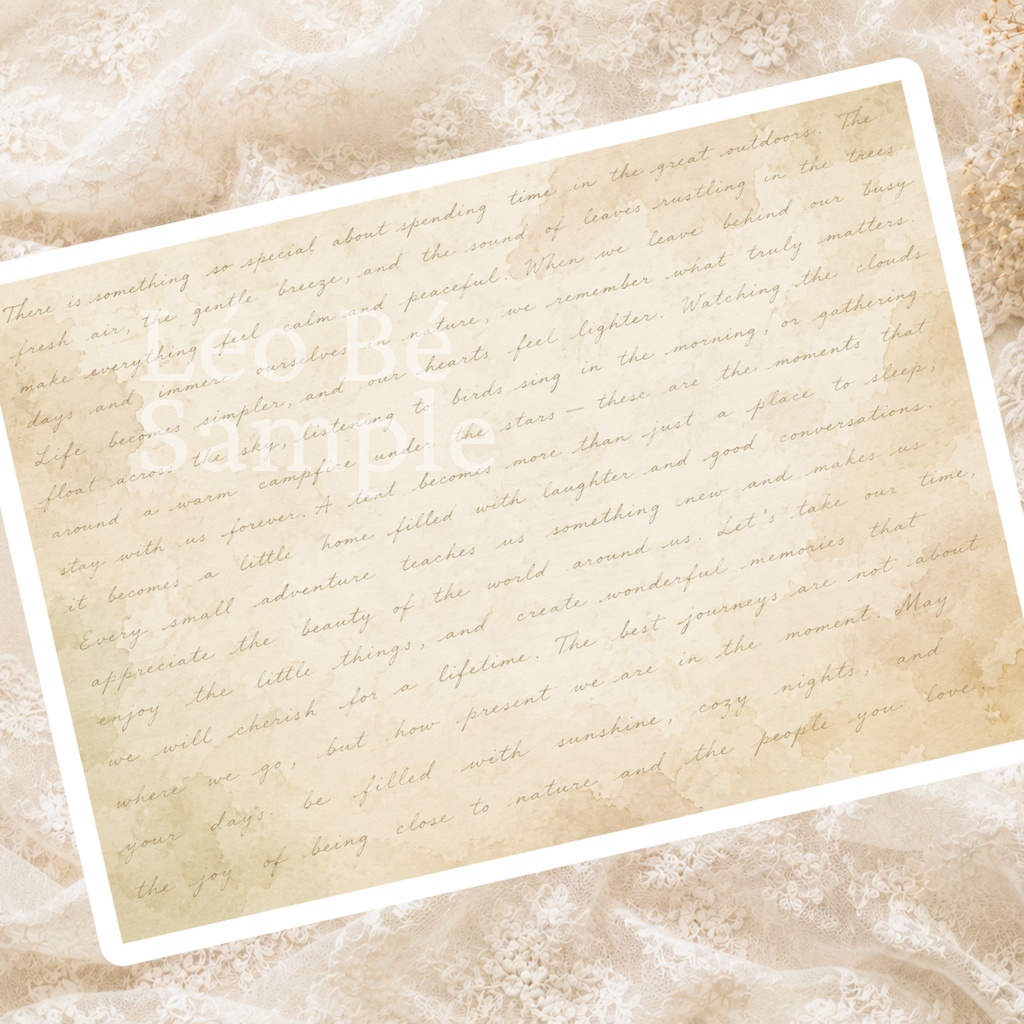 There is something so special about spending time in the great outdoors. The
fresh air, the gentle breeze, and the sound of leaves rustling in the trees
make everything feel calm and peaceful. When we leave behind our busy
days and immerse ourselves in nature, we remember what truly matters.
Life becomes simpler, and our hearts feel lighter. Watching the clouds
float across the sky, listening to birds sing in the morning, or gathering
around a warm campfire under the stars — these are the moments that
stay with us forever. A tent becomes more than just a place to sleep;
it becomes a little home filled with laughter and good conversations.
Every small adventure teaches us something new and makes us
appreciate the beauty of the world around us. Let's take our time,
enjoy the little things, and create wonderful memories that
we will cherish for a lifetime. The best journeys are not about
where we go, but how present we are in the moment. May
your days. be filled with sunshine, cozy nights, and
the joy of being close to nature and the people you love.
Léo Bé
Sample